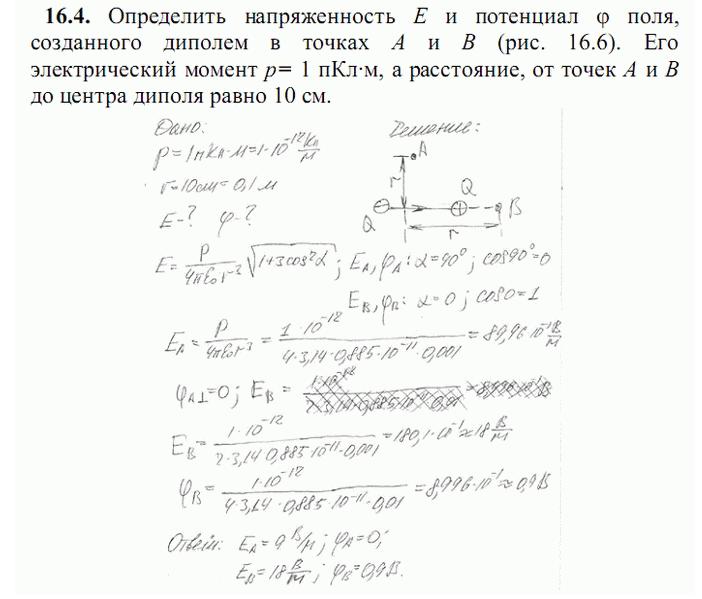 16.4. Определить напряженность E и потенциал φ поля,
созданного диполем в точках A и B (рис. 16.6). Его
электрический момент p= 1 пКл·м, а расстояние, от точек A и B
до центра диполя равно 10 см.
Дано:
P = 1пКл·м = 1·10⁻¹² Кл/м
r = 10см = 0,1 м
E-? φ-?
Решение:
A
r
Q
Q
B
r
E = P/(4πε₀r³) √(1+3cos²α) ; E_A, φ_A: α=90° ; cos90°=0
E_B, φ_B: α=0 ; cos0=1
E_A = P/(4πε₀r³) = 1·10⁻¹²/(4·3,14·0,885·10⁻¹¹·0,001) = 89,96·10⁻¹ В/м
φ_A⊥=0; E_B =
E_B = 1·10⁻¹²/(2·3,14·0,885·10⁻¹¹·0,001) = 180,1·10⁻¹ ≈ 18 В/м
φ_B = 1·10⁻¹²/(4·3,14·0,885·10⁻¹¹·0,01) = 8,996·10⁻¹ ≈ 0,9 В
Ответ: E_A = 9 В/м ; φ_A = 0;
E_B = 18 В/м ; φ_B = 0,9 В.